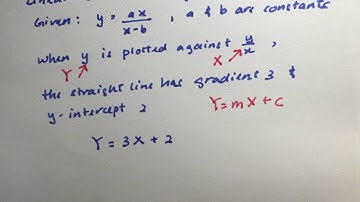 Given: y = ax/(x-b) , a & b are constants
when y is plotted against y/x ,
Y X
the straight line has gradient 3 &
y-intercept 2 Y=mX+C
Y = 3X + 2